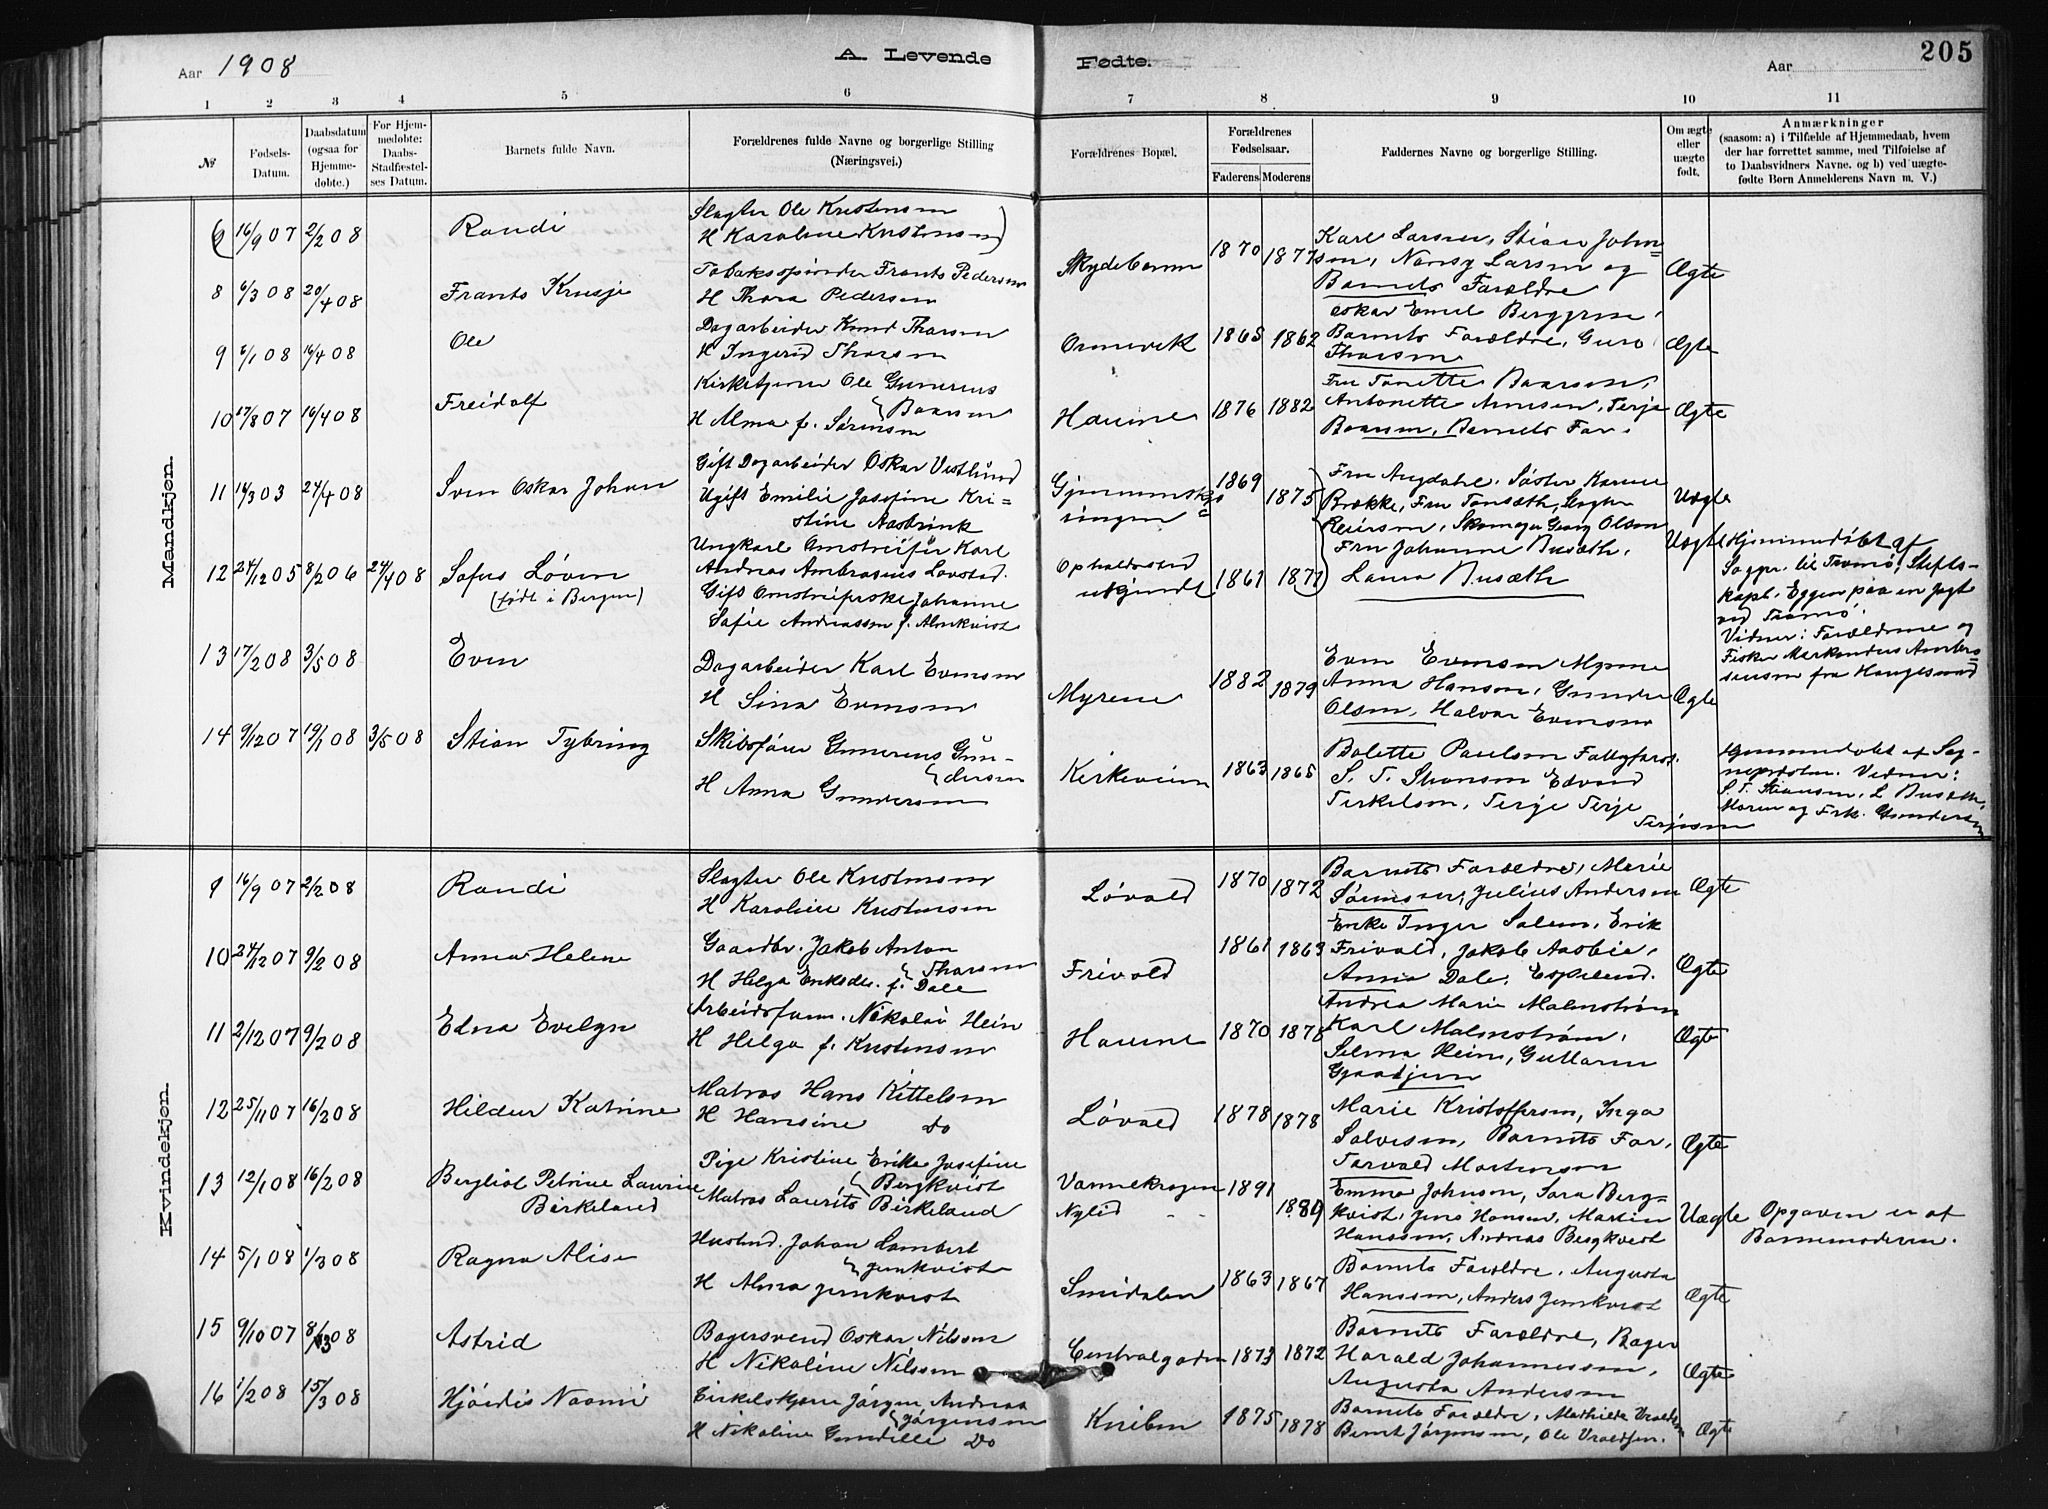 Aar 1908
A. Levende
Fødte.
Aar
205
1 2 3 4 5 6 7 8 9 10 11
№
Fødsels-Datum.
Daabsdatum (ogsaa for Hjemme-døbte.)
For Hjem-medøbte: Daabs-Stadfæstel-ses Datum.
Barnets fulde Navn.
Forældrenes fulde Navne og borgerlige Stilling
(Næringsvei.)
Forældrenes Bopæl.
Forældrenes Fødselsaar.
Faderens Moderens
Faddernes Navne og borgerlige Stilling.
Om ægte eller uægte født.
Anmærkninger
(saasom: a) i Tilfælde af Hjemmedaab, hvem
der har forrettet samme, med Tilføielse af
to Daabsvidners Navne. og b) ved uægte-
fødte Børn Anmelderens Navn m. V.)
Mandkjøn.
16/9 07 2/2 08 Randi
Slagter Ole Kristensen
H Karoline Kristensen
8 6/3 08 20/4 08 Frants Krusje
Tobaksspinder Frants Pedersen
H Thora Pedersen
1870 1877
Karl Larsen, Stian John=
sen, Nansy Larsen og
Barnets Forældre
Ægte
9 6/1 08 16/4 08 Ole
Dagarbeider Knud Tharsen
H Ingerid Tharsen
Ormevik 1865 1862
Oskar Emil Berggren,
Barnets Forældre, Guro
Tharsen
Ægte
10 17/8 07 16/4 08 Freidolf
Kirketjener Ole Gunerius
Baarsen
H Alma f. Sørensen
Havene 1876 1882
Fru Tonette Baarsen,
Antonette Arnesen, Terje
Baarsen, Barnets For.
Ægte
11 16/3 03 24/4 08 Sven Oskar Johan
Gift Dagarbeider Oskar Vestlund
Ugift Emilie Josefine Kri=
stine Aasbrink
1869 1875
Fru Angdahl, Søster Karine
Brække, Fru Tonsæth, Slagter
Reiersen, Skomager Georg Olsen
Uægte
12 24/12 05 8/2 06 24/4 08 Sofus Løvin
(født i Bergen)
Ungkarl Omstreifer Karl
Andreas Ambrosius Lovstad.
Gift Omstreiferske Johanne
Sofie Andreassen f. Almkvist
Opholdssted
ukjendt 1861 1871
Fru Johanne Busæth,
Laura Busæth
Uægte
Hjemmedøbt af
Sogpr. til Tromø, Stifts-
kapl. Eggen paa en Jagt
ved Tromø.
Vidner: Forældrene og
Fisker Markendus Ambro=
siusen fra Haugesund
13 17/2 08 3/5 08 Even
Dagarbeider Karl Evensen
H Sina Evensen
Myrene 1882 1879
Even Evensen Myrene
Anna Hansen, Gunder
Olsen, Halvor Evensen
Ægte
14 9/12 07 19/1 08 3/5 08 Stian Tybring
Skibsfører Gunerius Gun-
dersen
H Anna Gundersen
Kirkeveien 1863 1865
Bolette Paulsen
S. T. Stiansen Edvard
Terkelsen, Terje Terje
Terjesen
Hjemmedøbt af Sog-
nepresten. Vidner:
S. T. Stiansen, L Busæth,
Moren og Frk. Gundersen
Kvindekjøn.
9 16/9 07 2/2 08 Randi
Slagter Ole Kristensen
H Karoline Kristensen
Løvold 1870 1872
Barnets Forældre, Marie
Sørensen, Julius Andersen
Ægte
10 24/12 07 9/2 08 Anna Helene
Gaardbr. Jakob Anton
Tharsen
H Helga Eriksdtr. f. Dale
Frivold 1861 1863
Enke Inger Salem, Erik
Frivold, Jakob Aasbie,
Anna Dale, Espelund.
Ægte
11 2/12 07 9/2 08 Edna Evelyn
Arbeidsform. Nikolai Hein
H Helga f. Kristensen
Havene 1870 1878
Andrea Marie Malmstrøm
Karl Malmstrøm,
Selma Hein,
Ægte
12 25/11 07 16/2 08 Hildur Katrine
Matros Hans Kittelsen
H Hansine Do
Løvold 1878 1878
Marie Kristoffersen, Inga
Salvesen, Barnets For,
Torvald Mortensen
Ægte
13 12/1 08 16/2 08 Bergliot Petrine Laurine
Birkeland
Pige Kristine Erike Josefine
Bergkvist
Matros Laurits Birkeland
Vannekragen 1891
Nylid 1889
Emma Johnsen, Sara Berg=
kvist, Jens Hansen, Martin
Hanssen, Andreas Bergkvist
Uægte
Opgaven er af
Barnemoderen.
14 5/1 08 1/3 08 Ragna Alise
Hustmd. Johan Lambert
Jernkvist
H Alma Jernkvist
Smidalen 1863 1867
Barnets Forældre, Augusta
Hanssen, Anders Jernkvist
Ægte
15 9/10 07 8/3 08 Astrid
Bagersvend Oskar Nilssen
H Nikoline Nilssen
Centralgaden 1873 1872
Barnets Forældre, Bager
Harald Johannessen,
Augusta Andersen
Ægte
16 1/2 08 15/3 08 Hjördis Naomi
Cirkelskjærer Jørgen Andreas
Jørgensen
H Nikoline Gundille Do
Kniben 1875 1878
Barnets Forældre, Mathilde Uvaldsen
Bernt Jørgensen, Ole Uvaldsen.
Ægte